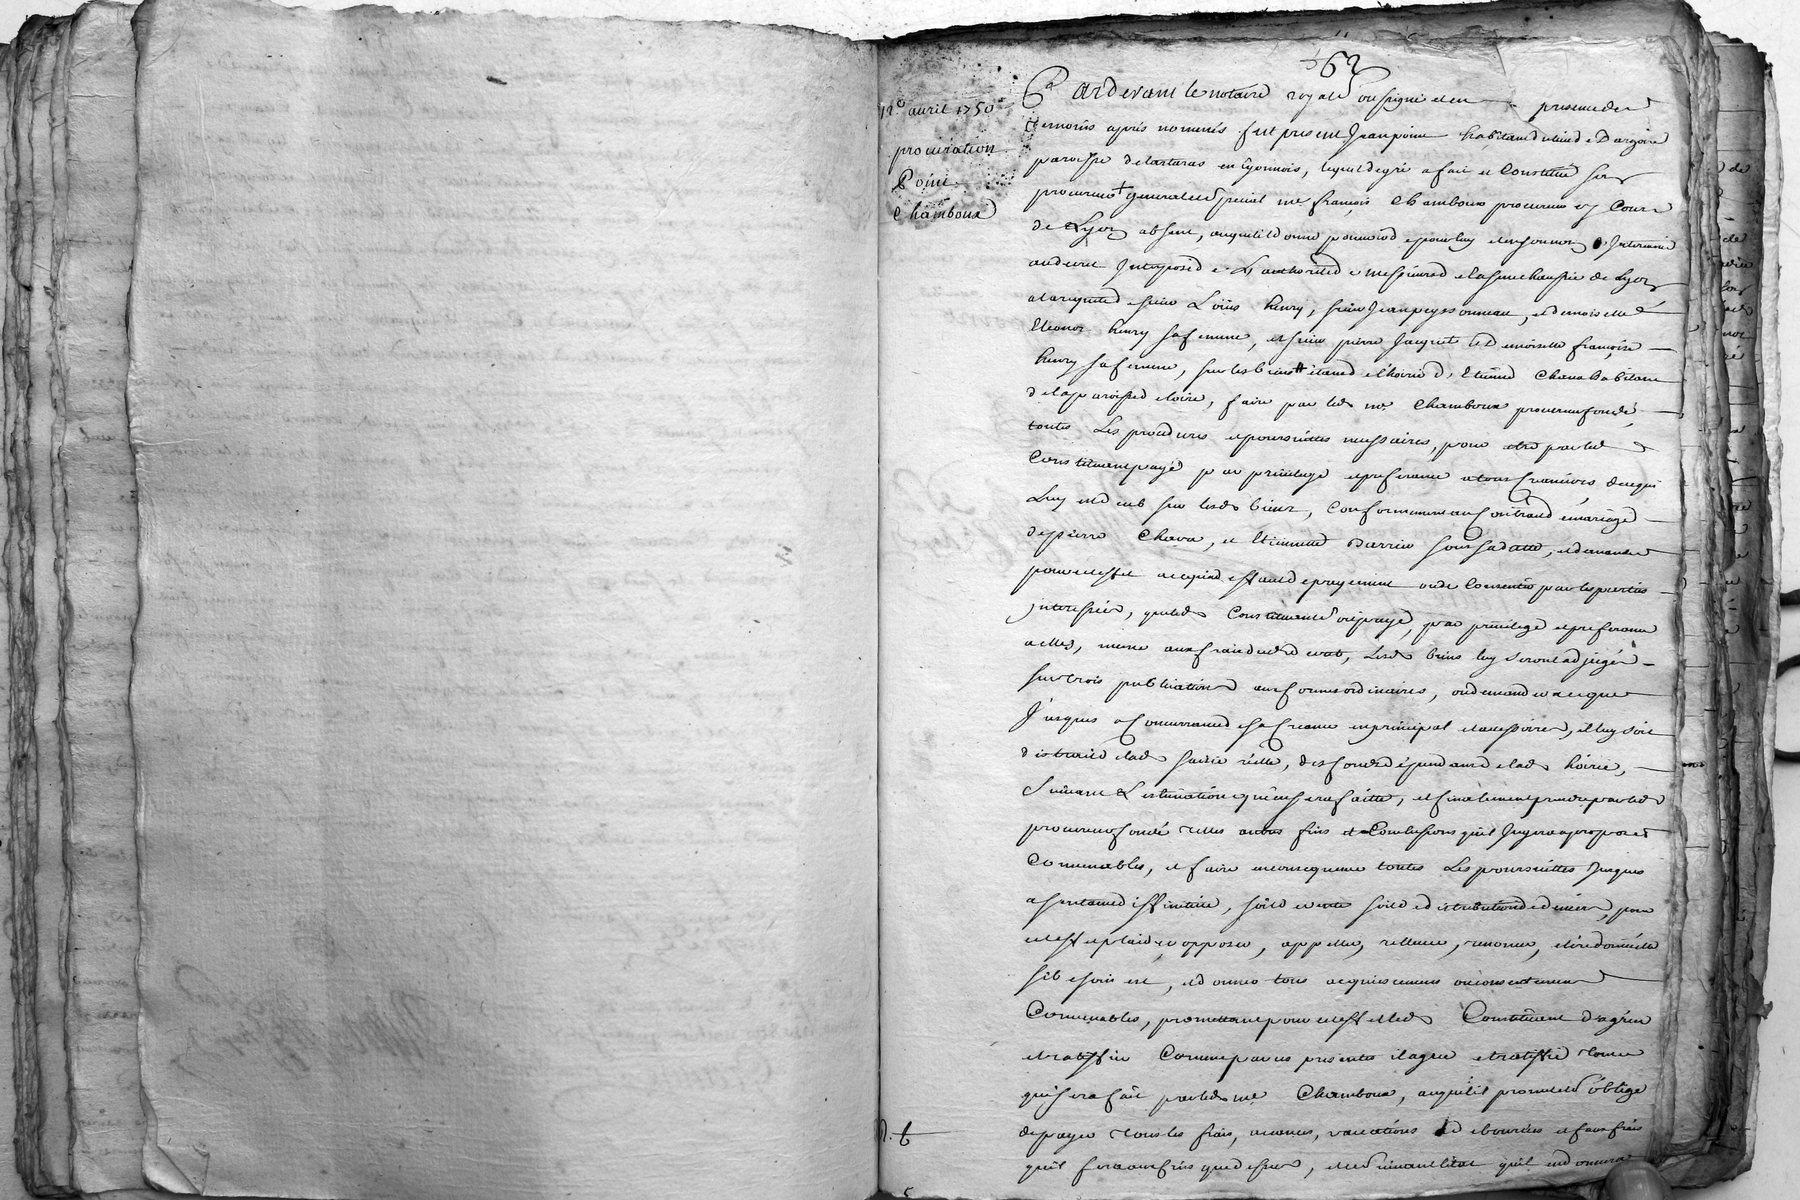 62
12e avril 1750
procuration
Point
Chamboux
Pardevant le notaire royal soussigné et en presence des
temoins après nommés fut present Jean point habitant du lieu de Dargoire
paroisse de tartaras en lyonnois, lequel de gré a fait et constitué son
procureur + general et special me françois Chamboux procureur ez Cours
de Lyon absent, auquel il donne pouvoir de pour luy et en son nom d'Intervenir
au decret Interposé de L'authorité de messieurs de la senechaussée de Lyon
a la requete de sieur Loüis henry, sieur Jean peyssonneau, et demoiselle
Eleonor henry sa femme, et sieur pierre Jacquet et demoiselle françoise
henry sa femme, sur les biens de l'hoirie d'Etienne Chava habitant
de la paroisse de loire, faire par led. me. Chamboux procureur fondé
toutes Les procedures et poursuittes necessaires, pour etre par led.
Constituant payé par privilege et preferance a tous creanciers de ce qui
Luy est deub sur lesds. biens, conformement au Contrat de mariage
de pierre Chava, et Etiennette sous sa datte, et demander
pour cet effet acquiessement ou de Consentir par les parties
interessées, que led. Constituant soit payé, par privilege et preferance
a elles, meme aux frais dud. decret, Lesds. biens luy seront adjugés
sur trois publications aux formes ordinaires, ou demander a ce que
Jusques a Concurrance de sa creance en principal et accessoires, il luy soit
distrait de lad. saisie réelle, des fonds dépendants de lad. hoirie,
Suivant L'estimation qui en sera faitte, et finalement prendre par led.
procureur fondé telles autres fins et Conclusions qu'il Jugera a propos et
Convenables, et faire en consequence toutes Les poursuittes Jusques
a sentence deffinitive, soit de vente soit de distribution de deniers, pour
cet effet plaider, opposer, appeller, rellever, renoncer, elire domicille
si besoin est, et donner tous acquiescements ou consentements
Convenables, promettant pour cet effet led. Constituant d'agréer
et ratiffier Comme par ces presentes il agrée et ratiffie tout ce
qui sera fait par led. me. Chamboux, auquel il promet et s'oblige
de payer tous les frais, avances, vaccations et debourcés et faux frais
qu'il fera aux fins que dessus, et ce suivant l'etat qu'il en donnera